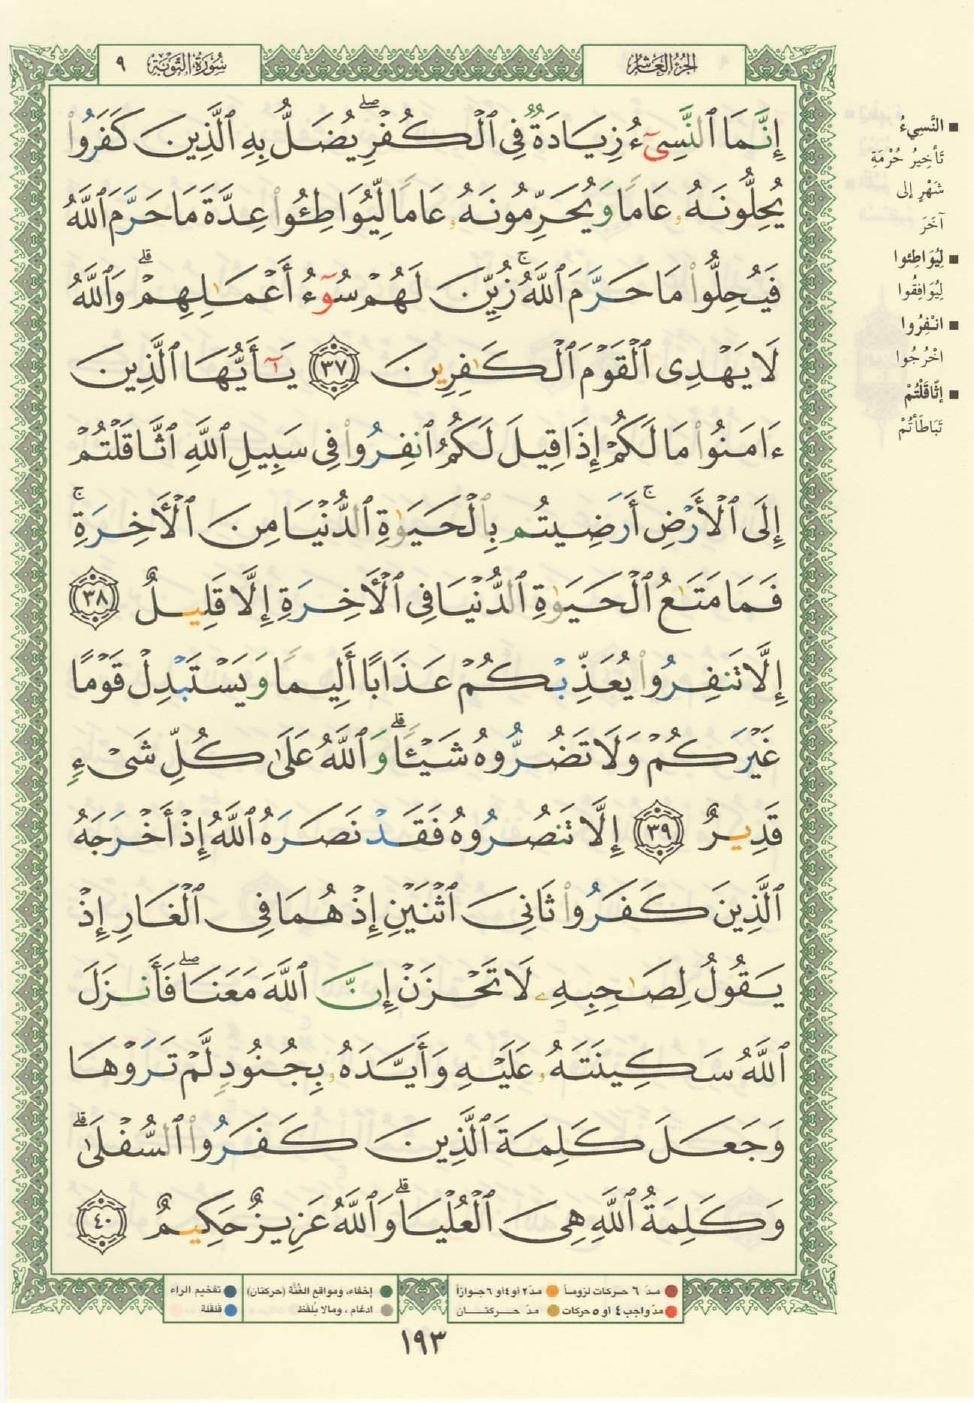 سُورَةُ التَّوْبَةِ ٩
الجُزْءُ العَاشِرُ
إِنَّمَا ٱلنَّسِىٓءُ زِيَادَةٌ فِى ٱلْكُفْرِ ۖ يُضَلُّ بِهِ ٱلَّذِينَ كَفَرُوا۟
يُحِلُّونَهُۥ عَامًا وَيُحَرِّمُونَهُۥ عَامًا لِّيُوَاطِـُٔوا۟ عِدَّةَ مَا حَرَّمَ ٱللَّهُ
فَيُحِلُّوا۟ مَا حَرَّمَ ٱللَّهُ ۚ زُيِّنَ لَهُمْ سُوٓءُ أَعْمَـٰلِهِمْ ۗ وَٱللَّهُ
لَا يَهْدِى ٱلْقَوْمَ ٱلْكَـٰفِرِينَ ٣٧ يَـٰٓأَيُّهَا ٱلَّذِينَ
ءَامَنُوا۟ مَا لَكُمْ إِذَا قِيلَ لَكُمُ ٱنفِرُوا۟ فِى سَبِيلِ ٱللَّهِ ٱثَّاقَلْتُمْ
إِلَى ٱلْأَرْضِ ۚ أَرَضِيتُم بِٱلْحَيَوٰةِ ٱلدُّنْيَا مِنَ ٱلْـَٔاخِرَةِ ۚ
فَمَا مَتَـٰعُ ٱلْحَيَوٰةِ ٱلدُّنْيَا فِى ٱلْـَٔاخِرَةِ إِلَّا قَلِيلٌ ٣٨
إِلَّا تَنفِرُوا۟ يُعَذِّبْكُمْ عَذَابًا أَلِيمًا وَيَسْتَبْدِلْ قَوْمًا
غَيْرَكُمْ وَلَا تَضُرُّوهُ شَيْـًٔا ۗ وَٱللَّهُ عَلَىٰ كُلِّ شَىْءٍ
قَدِيرٌ ٣٩ إِلَّا تَنصُرُوهُ فَقَدْ نَصَرَهُ ٱللَّهُ إِذْ أَخْرَجَهُ
ٱلَّذِينَ كَفَرُوا۟ ثَانِىَ ٱثْنَيْنِ إِذْ هُمَا فِى ٱلْغَارِ إِذْ
يَقُولُ لِصَـٰحِبِهِۦ لَا تَحْزَنْ إِنَّ ٱللَّهَ مَعَنَا ۖ فَأَنزَلَ
ٱللَّهُ سَكِينَتَهُۥ عَلَيْهِ وَأَيَّدَهُۥ بِجُنُودٍ لَّمْ تَرَوْهَا
وَجَعَلَ كَلِمَةَ ٱلَّذِينَ كَفَرُوا۟ ٱلسُّفْلَىٰ ۗ
وَكَلِمَةُ ٱللَّهِ هِىَ ٱلْعُلْيَا ۗ وَٱللَّهُ عَزِيزٌ حَكِيمٌ ٤٠
النَّسِيءُ
تَأْخِيرُ حُرْمَةِ
شَهْرٍ إلى
آخَرَ
لِيُوَاطِئوا
لِيُوَافِقُوا
انْفِرُوا
اخْرُجُوا
إثَّاقَلْتُمْ
تَبَاطَأْتُمْ
مدّ ٦ حركات لزوماً مدّ ٢ أو ٤ أو ٦ جوازاً
مدّ واجب ٤ أو ٥ حركات مدّ حركتان
إخفاء، ومواقع الغُنَّة (حركتان) تفخيم الراء
ادغام ، ومالا يُلفظ قلقلة
١٩٣